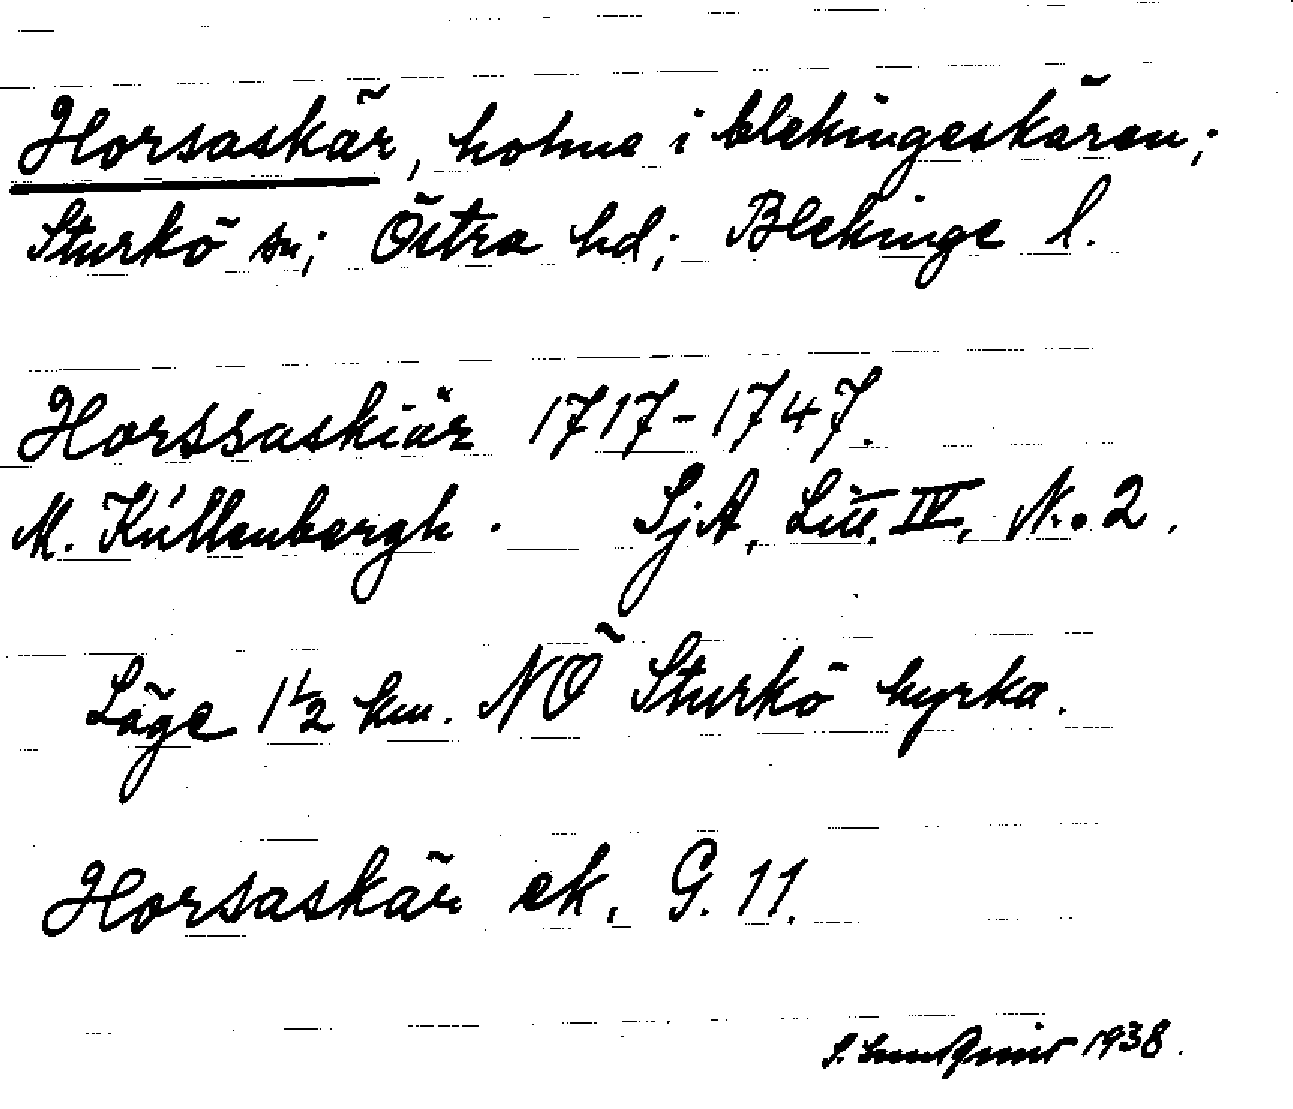 Horsaskär, holme i blekingeskären;
Sturkö sn; Östra hd; Blekinge l.
Horssaskiär 1717-1747.
M. Küllenbergh. SjA, Litt. IV, N:o 2.
Läge 1 1/2 km. NÖ Sturkö kyrka.
Horsaskär ek. G. 11.
1938.